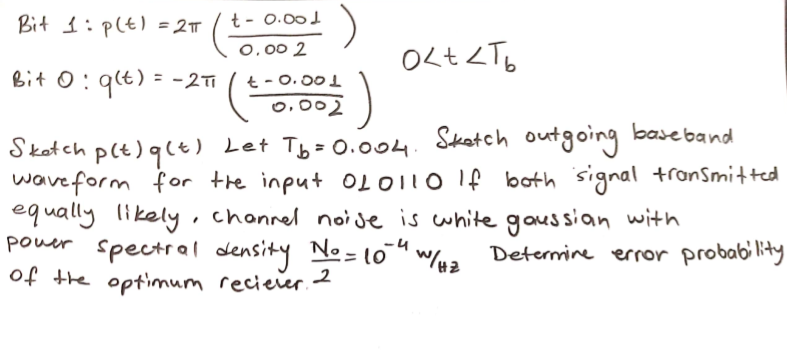 Bit 1 : p(t) = 2π ( t - 0.001 / 0.002 )
0<t<Tb
Bit 0 : q(t) = -2π ( t - 0.001 / 0.002 )
Sketch p(t) q(t) Let Tb = 0.004. Sketch outgoing baseband
waveform for the input 010110 If both signal transmitted
equally likely, channel noise is white gaussian with
power spectral density No/2 = 10⁻⁴ W/HZ Determine error probability
of the optimum reciever.